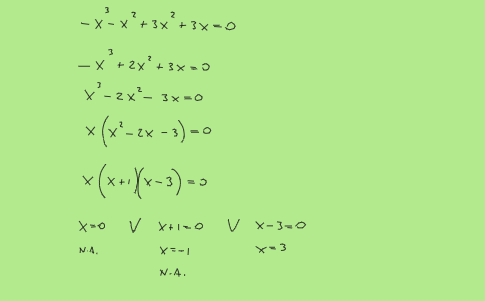 -x³-x²+3x²+3x=0
-x³+2x²+3x=0
x³-2x²-3x=0
x(x²-2x-3)=0
x(x+1)(x-3)=0
x=0 V x+1=0 V x-3=0
N.A. x=-1 x=3
N.A.